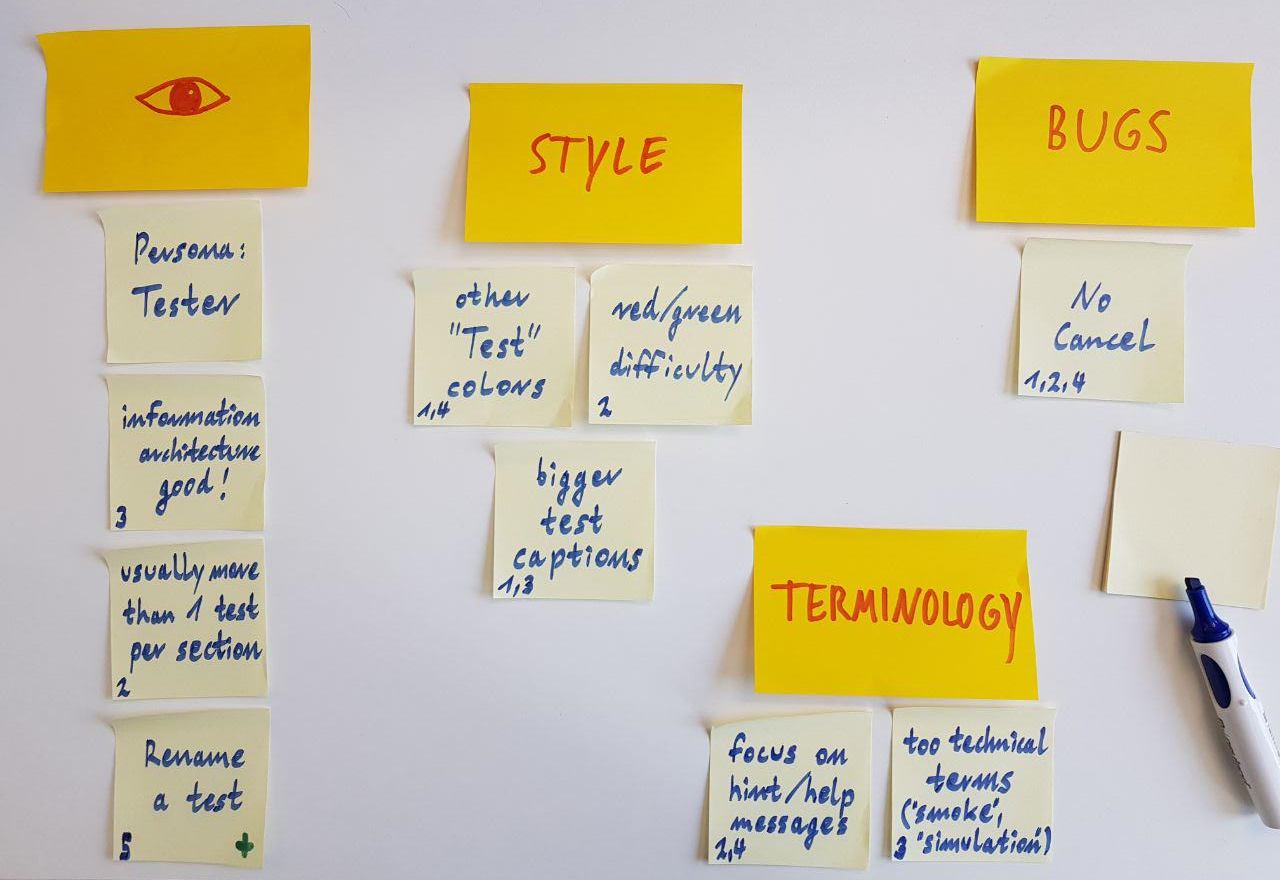 Persona:
Tester
information
architecture
good!
3
usually more
than 1 test
per section
2
Rename
a test
5
STYLE
other
"Test"
colors
1,4
red/green
difficulty
2
bigger
test
captions
1,3
BUGS
No
Cancel
1,2,4
TERMINOLOGY
focus on
hint/help
messages
2,4
too technical
terms
("smoke",
"simulation")
3